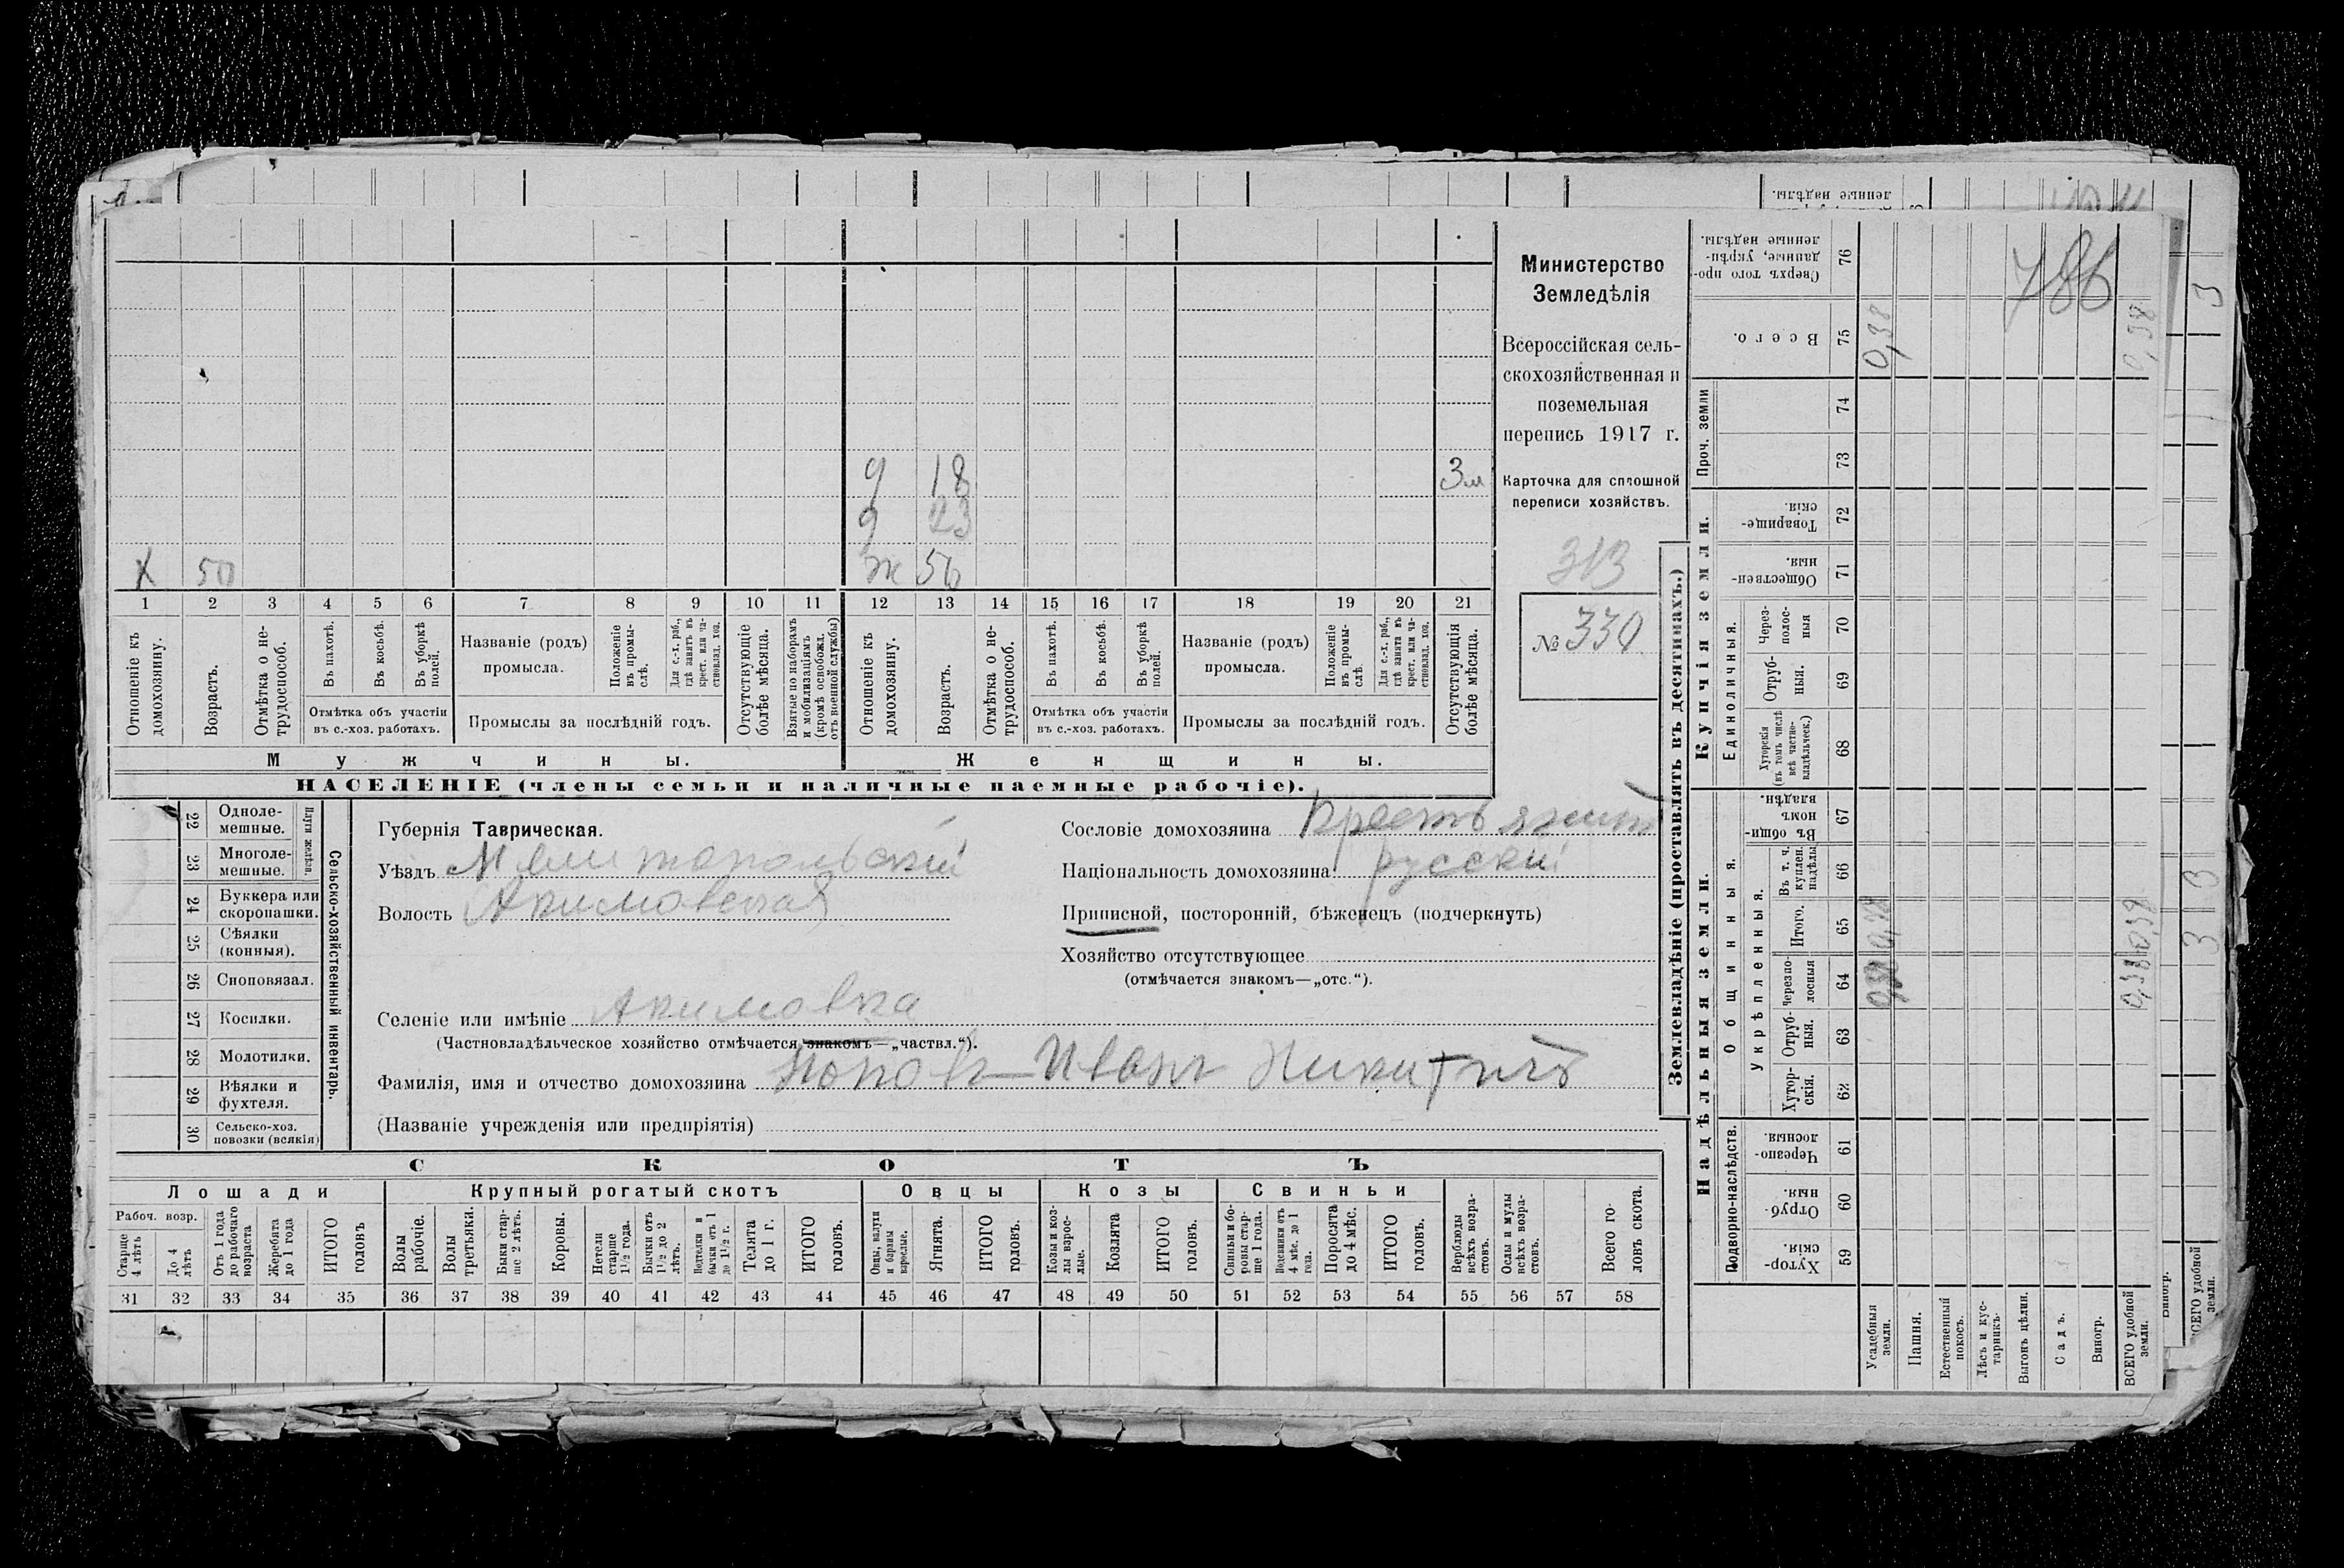 Министерство
Земледѣлія
Всероссійская сель-
скохозяйственная и
поземельная
перепись 1917 г.
Карточка для сплошной
переписи хозяйствъ.
313
№ 330
786
д 18 3м
д 23
х 50 ж 50
1 2 3 4 5 6 7 8 9 10 11 12 13 14 15 16 17 18 19 20 21
Отношеніе къ домохозяину.
Возрастъ.
Отмѣтка о не-трудоспособ.
Въ пахотѣ.
Въ косьбѣ.
Въ уборкѣ полей.
Отмѣтка объ участіи
въ с.-хоз. работахъ.
Названіе (родъ)
промысла.
Положеніе въ промы-слѣ.
Для с.-х. раб., гдѣ занятъ въ крест. или ча-стновлад. хоз.
Промыслы за послѣдній годъ.
Отсутствующіе болѣе мѣсяца.
Взятые по наборамъ и мобилизаціямъ (кромѣ освобожд. отъ военной службы)
Отношеніе къ домохозяину.
Возрастъ.
Отмѣтка о не-трудоспособ.
Въ пахотѣ.
Въ косьбѣ.
Въ уборкѣ полей.
Отмѣтка объ участіи
въ с.-хоз. работахъ.
Названіе (родъ)
промысла.
Положеніе въ промы-слѣ.
Для с.-х. раб., гдѣ занята въ крест. или ча-стновлад. хоз.
Промыслы за послѣдній годъ.
Отсутствующія болѣе мѣсяца.
Мужчины. Женщины.
НАСЕЛЕНІЕ (члены семьи и наличные наемные рабочіе).
Сельско-хозяйственный инвентарь.
Плуги желѣзн.
22 Одноле-мешные.
23 Многоле-мешные.
24 Буккера или скоропашки.
25 Сѣялки (конныя).
26 Сноповязал.
27 Косилки.
28 Молотилки.
29 Вѣялки и фухтеля.
30 Сельско-хоз. повозки (всякія)
Губернія Таврическая.
Уѣздъ Мелитопольскій
Волость Акимовская
Селеніе или имѣніе Акимовка
(Частновладѣльческое хозяйство отмѣчается знакомъ—„частвл.“).
Фамилія, имя и отчество домохозяина Поповъ Иванъ Никитичъ
(Названіе учрежденія или предпріятія)
Сословіе домохозяина Крестьянинъ
Національность домохозяина русскій
Приписной, посторонній, бѣженецъ (подчеркнуть)
Хозяйство отсутствующее
(отмѣчается знакомъ—„отс.“).
СКОТЪ
Лошади Крупный рогатый скотъ Овцы Козы Свиньи
Рабоч. возр.
Старше 4 лѣтъ
До 4 лѣтъ
Отъ 1 года до рабочаго возраста
Жеребята до 1 года
ИТОГО головъ
Волы рабочіе.
Волы третьяки.
Быки стар-ше 2 лѣтъ.
Коровы.
Нетели старше 1½ года.
Бычки отъ 1½ до 2 лѣтъ.
Подтелки и бычки отъ 1 до 1½ г.
Телята до 1 г.
ИТОГО головъ.
Овцы, валухи и бараны взрослые.
Ягнята.
ИТОГО головъ.
Козы и коз-лы взрос-лые.
Козлята
ИТОГО головъ.
Свиньи и бо-ровы стар-ше 1 года.
Подсвинки отъ 4 мѣс. до 1 года.
Поросята до 4 мѣс.
ИТОГО головъ.
Верблюды всѣхъ возра-стовъ.
Ослы и мулы всѣхъ возра-стовъ.
Всего го-ловъ скота.
31 32 33 34 35 36 37 38 39 40 41 42 43 44 45 46 47 48 49 50 51 52 53 54 55 56 57 58
Землевладѣніе (проставлять въ десятинахъ.)
Надѣльныя земли. Купчія земли. Проч. земли
Подворно-наслѣдств.
Общинныя.
Укрѣпленныя.
Единоличныя.
76 Сверхъ того про-данные, укрѣп-ленные надѣлы.
75 Всего. 0,38 0,38
74
73
72 Товарище-скія.
71 Обществен-ныя.
70 Через-полос-ныя
69 Отруб-ныя.
68 Хуторскія (въ томъ числѣ всѣ частно-владѣльческ.)
67 Въ общин-номъ владѣн.
66 Въ т. ч. куплен. надѣлы
65 Итого.
64 Черезпо-лосныя
63 Отруб-ныя.
62 Хутор-скія.
61 Черезпо-лосныя.
60 Отруб-ныя.
59 Хутор-скія.
Усадебныя земли.
Пашня.
Естественный покосъ.
Лѣсъ и кус-тарникъ.
Выгонъ цѣлин.
Садъ.
Виногр.
ВСЕГО удобной земли.
ленные надѣлы.
3
313
Виногр.
ВСЕГО удобной земли.